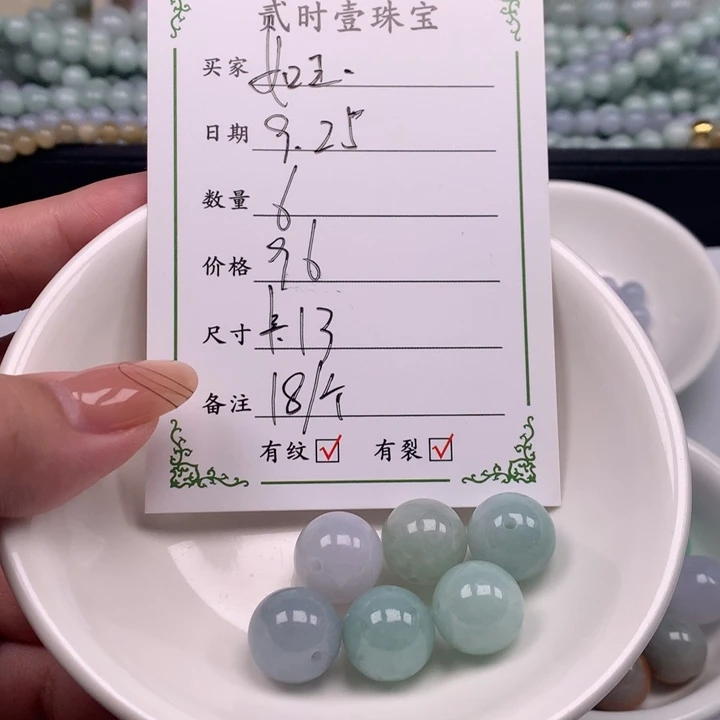 贰时壹珠宝
买家 女王.
日期 9.25
数量 6
价格 96
尺寸 长13
备注 18/个
有纹☑ 有裂☑